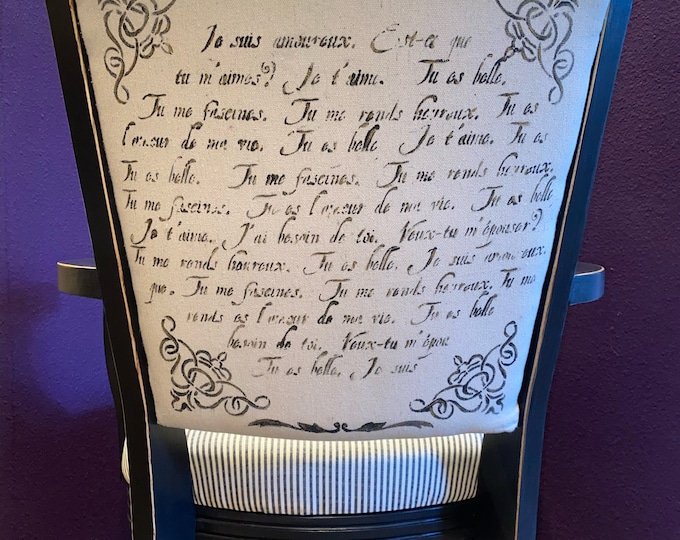 Je suis amoureux. Est-ce que
tu m'aimes? Je t'aime. Tu es belle.
Tu me fascines. Tu me rends heureux. Tu es
l'amour de ma vie. Tu es belle Je t'aime. Tu es
Tu es belle. Tu me fascines. Tu me rends heureux.
Tu me fascines. Tu es l'amour de ma vie. Tu es belle
Je t'aime. J'ai besoin de toi. Veux-tu m'épouser?
Tu me rends heureux. Tu es belle. Je suis amoureux.
que. Tu me fascines. Tu me rends heureux. Tu me
rends es l'amour de ma vie. Tu es belle
besoin de toi. Veux-tu m'épou
Tu es belle. Je suis